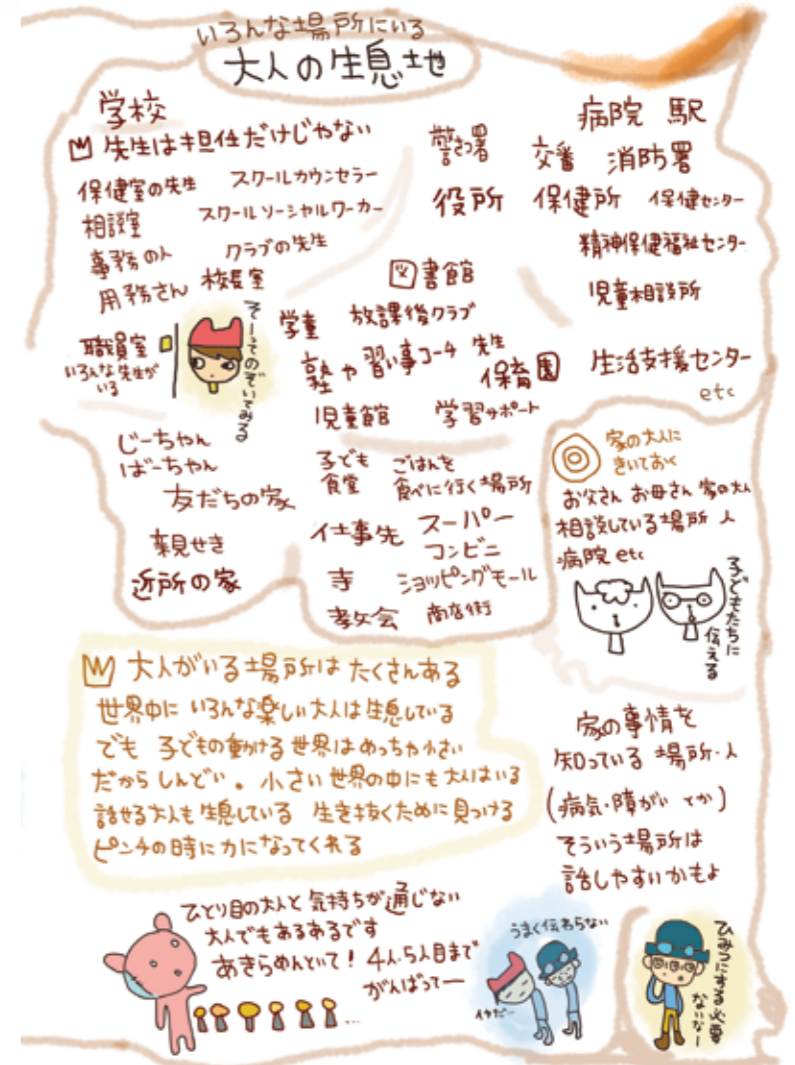 いろんな場所にいる
大人の生息地
学校
先生は担任だけじゃない
保健室の先生
スクールカウンセラー
相談室
スクールソーシャルワーカー
事務の人
クラブの先生
用務さん
校長室
職員室
いろんな先生が
いる
そーってのぞいてみる
病院 駅
警さつ署
交番 消防署
役所 保健所 保健センター
精神保健福祉センター
図書館
児童相談所
学童
放課後クラブ
塾や習い事コーチ 先生
保育園
生活支援センター
etc
児童館
学習サポート
じーちゃん
ばーちゃん
友だちの家
親せき
近所の家
子ども
食堂
ごはんを
食べに行く場所
仕事先
スーパー
コンビニ
寺
ショッピングモール
教会
商店街
家の大人に
きいておく
お父さん お母さん 家の大人
相談している場所 人
病院 etc
子どもたちに
伝える
大人がいる場所は たくさんある
世界中に いろんな楽しい大人は生息している
でも 子どもの動ける世界はめっちゃ小さい
だから しんどい。小さい世界の中にも大人はいる
話せる大人も生息している 生き抜くために見つける
ピンチの時に力になってくれる
家の事情を
知っている 場所・人
(病気・障がい とか)
そういう場所は
話しやすいかもよ
ひとり目の大人と気持ちが通じない
大人でもあるあるです
あきらめんといて! 4人・5人目まで
がんばってー
...
うまく伝わらない
ひみつにする必要
ないなー